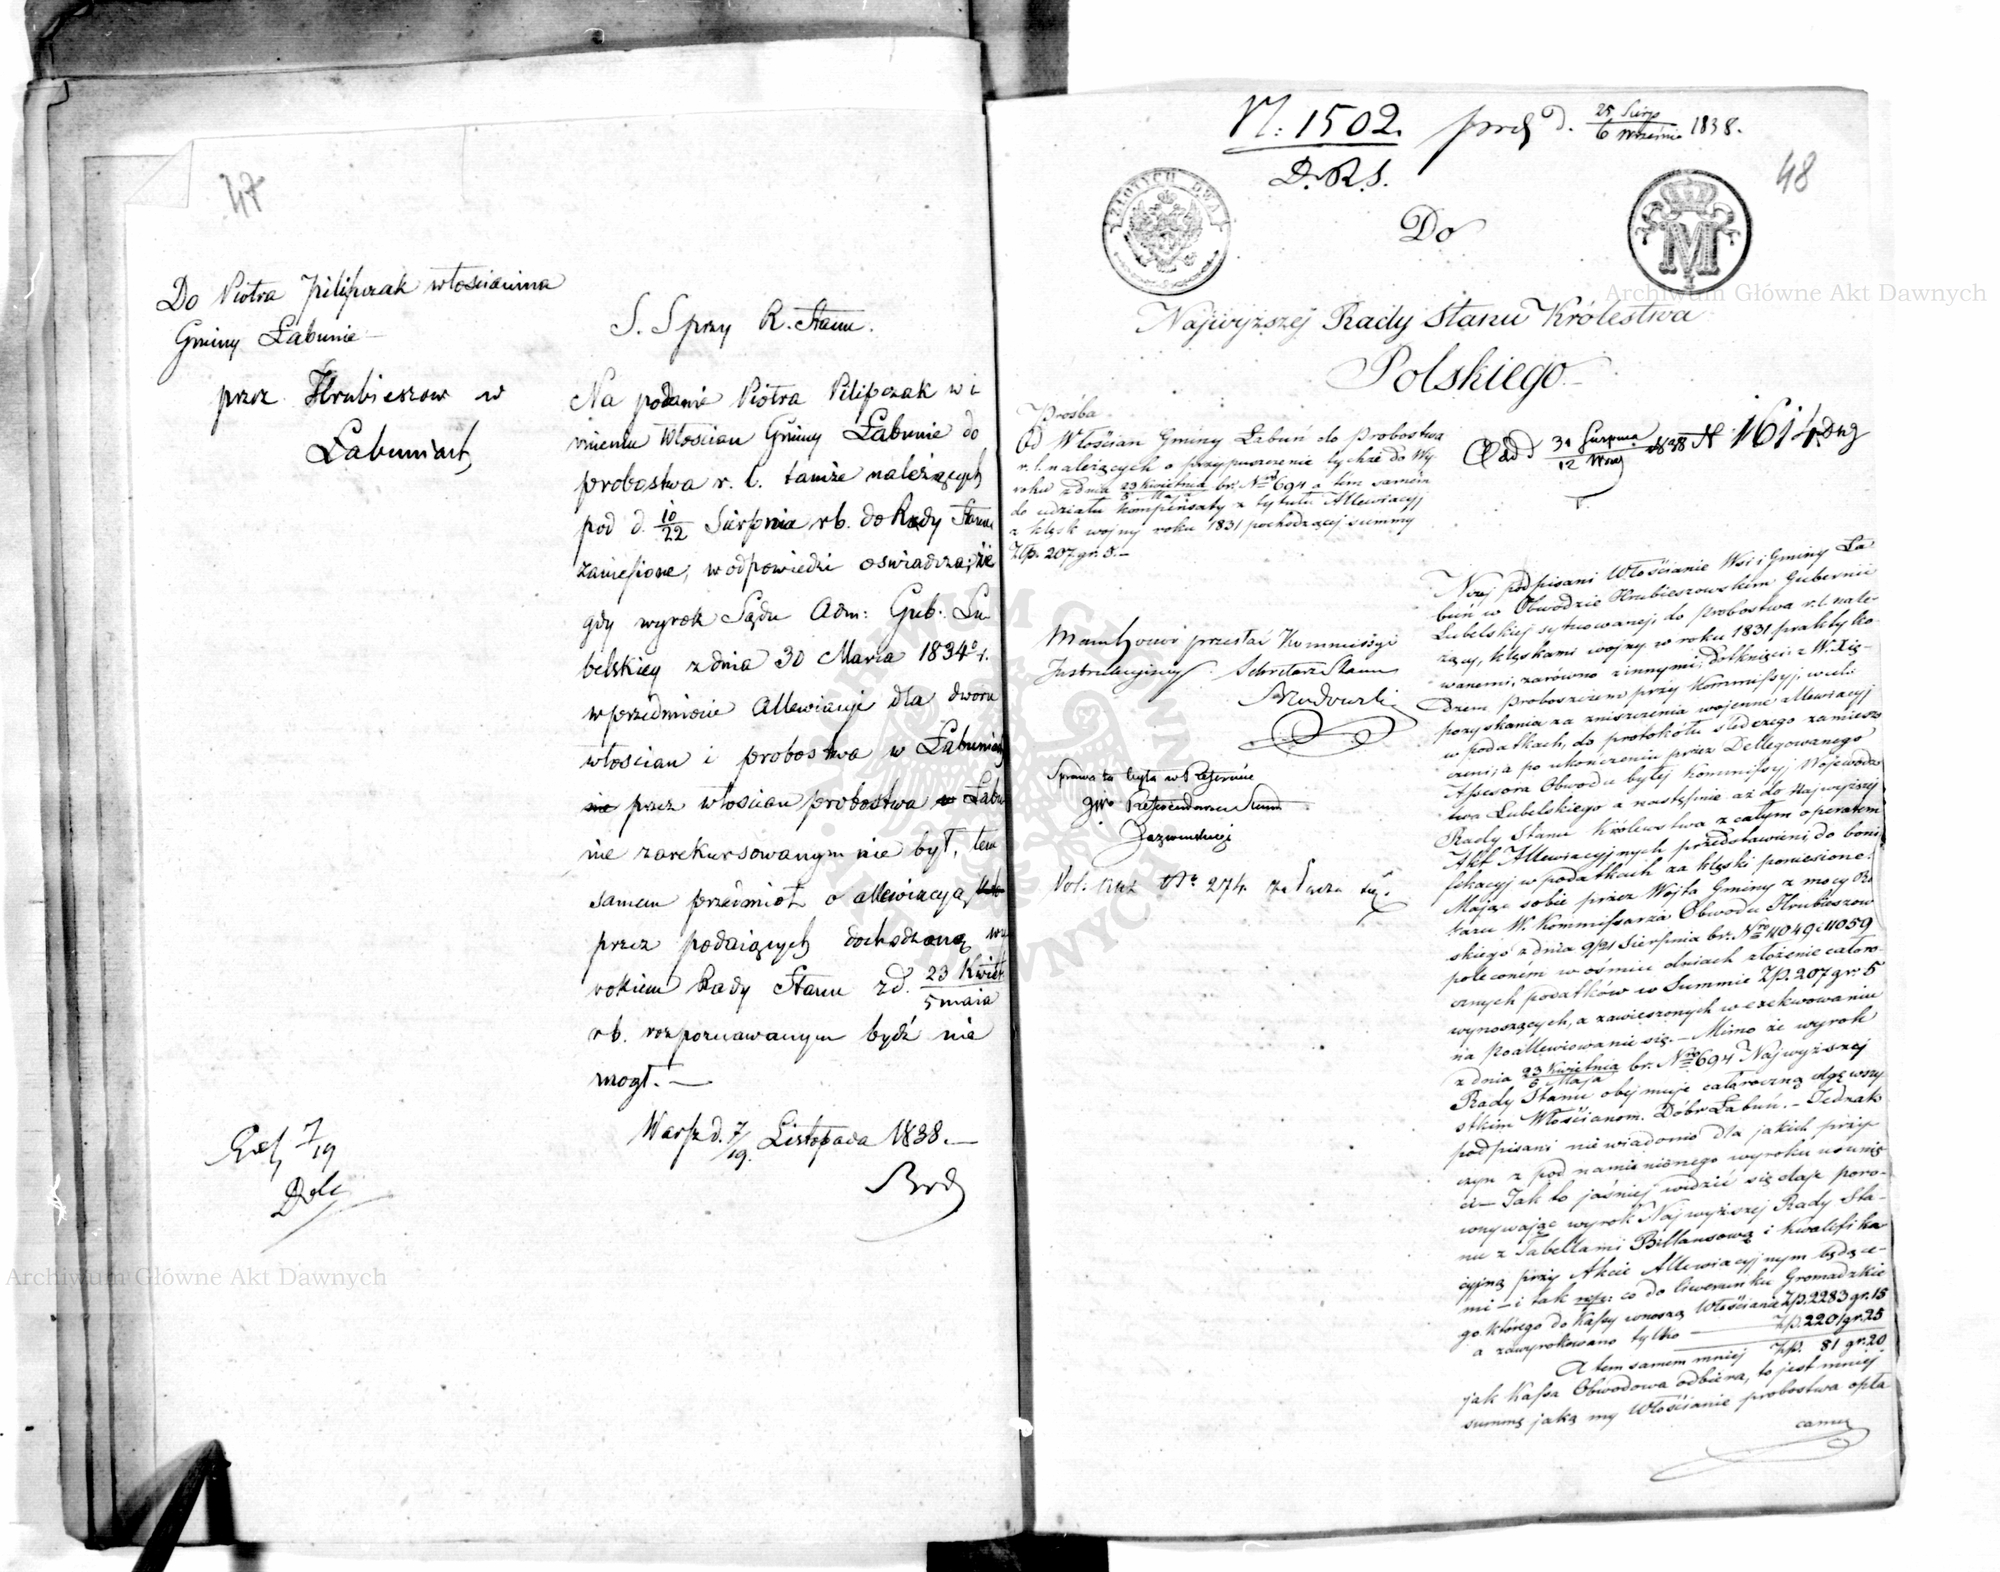 47
Do Piotra Pilipczak włościanina
Gminy Łabunie
przez Hrubieszow w
Łabuniach
S. S przy R. Stanu.
Na podanie Piotra Pilipczak w i
mieniu Włościan Gminy Łabunie do
probostwa r. l. tamże należących
pod d. 10/22 Sierpnia rb. do Rady Stanu
zaniesione, w odpowiedzi oswiadcza, że
gdy wyrok Sądu Adm: Gub. Lu
belskiey z dnia 30 Marca 1834 r.
w przedmiocie Allewiacyi dla dworu
włościan i probostwa w Łabuniach
przez włościan probostwa Łabu
nie zarekursowanym nie był, tem
samem przedmiot o allewiacyą
przez podaiących dochodzoną wy
rokiem Rady Stanu z d. 23 Kwiet/5 maia
rb. rozpoznawanym bydź nie
mogł. —
Warsz d. 7/19 Listopada 1838. —
Brd
Exp 7/19
N. 1502. prez d. 25 Sierp/6 Wrześnio 1838.
D. R. S.
48
ZŁOTYCH DWA
M
Do
Najwyższej Rady Stanu Królestwa
Polskiego
Prośba
Od Włościan Gminy Łabuń do Probostwa
r. l. należących o przypuszczenie tychże do Wy
roku z dnia 23 Kwietnia/5 Maja br. Nro 694 a tém samém
do udziału kompensaty z tytułu Allewiacyj
z klęsk wojny roku 1831 pochodzącej summy
Złp. 207 gr. 5. —
Odd d 31 Sierpnia/12 Wrześ 1838 N 1614
przesłać Kommissyi
Instrukcyjney Sekretarz Stanu
Brodowski
Sprawa ta była w Referacie
Referendarza Stanu
Vol: N 274
Niżej podpisani Włościanie Wsi i Gminy Ła
buń w Obwodzie Hrubieszowskim Gubernii
Lubelskiej sytuowanej, do probostwa r. l. nale-
żący, klęskami wojny w roku 1831 praktyko-
wanemi, zarówno z innymi dotknięci z W. Xię-
dzem Proboszczem przy Kommissyj, w celu
pozyskania za zniszczenia wojenne allewiacyj
w podatkach, do protokółu śledczego zamiesz
czeni, a po ukończeniu przez Dellegowanego
Assesora Obwodu byłej Kommissyj Wojewódz
twa Lubelskiego a następnie aż do Najwyższej
Rady Stanu Królewstwa z całym operatem
Akt Allewiacyjnych przedstawieni, do boni
fikacyj w podatkach za klęski poniesione.
Mając sobie przez Wójta Gminy z mocy Re
kursu W. Kommissarza Obwodu Hrubieszow
skiego z dnia 9/21 Sierpnia br. Nro 11049 i 11059
poleconém w ośmiu dniach złożenie całoro
cznych podatków w Summie Złp. 207 gr. 5
wynoszących, a zawieszonych w exekwowaniu
na poallewiowanie się. — Mimo że wyrok
z dnia 23 Kwietnia/5 Maja br. Nro 694 Najwyższej
Rady Stanu obejmuje całoroczną ulgę wszy
stkim Włościanom Dóbr Łabuń. — Jednak
podpisani niewiadomo dla jakich przy
czyn z pod namienionego wyroku usunię
ci — Jak to jaśniej widzić się daje poró-
wnywając wyrok Najwyższej Rady Sta-
nu z Tabellami Billansową i Kwalifika
cyjną przy Akcie Allewiacyjnym będące-
mi — i tak co do liwerunku Gromadzkie
go którego do Kassy wnoszą Włościanie Złp. 2283 gr. 15
a zawyrokowano tylko — Złp. 2201 gr. 25
A tem samem mniej Złp. 81 gr. 20
jak Kassa Obwodowa odbiera, to jest mniej
summą jaką my Włościanie probostwa opła
camy
Archiwum Główne Akt Dawnych
Archiwum Główne Akt Dawnych